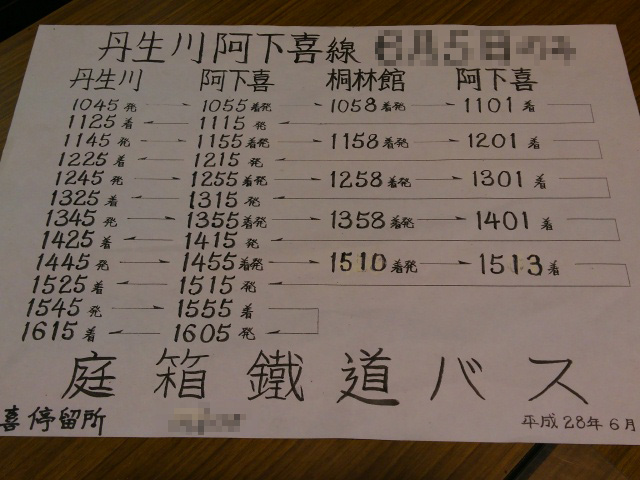 丹生川阿下喜線
丹生川 阿下喜 桐林館 阿下喜
1045発 1055着発 1058着発 1101着
1125着 1115発
1145発 1155着発 1158着発 1201着
1225着 1215発
1245発 1255着発 1258着発 1301着
1325着 1315発
1345発 1355着発 1358着発 1401着
1425着 1415発
1445発 1455着発 1510着発 1513着
1525着 1515発
1545発 1555着
1615着 1605発
庭箱鐵道バス
喜停留所
平成28年6月